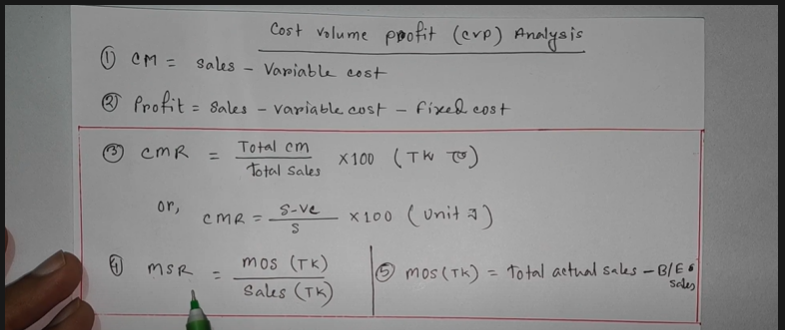 Cost Volume Profit (CVP) Analysis
① CM = Sales - Variable cost
② Profit = Sales - Variable cost - Fixed cost
③ CMR = Total CM / Total Sales × 100 (TK তে)
or, CMR = S-VC / S × 100 (Unit এ)
④ MSR = MOS (TK) / Sales (TK)
⑤ MOS (TK) = Total actual sales - B/E sales